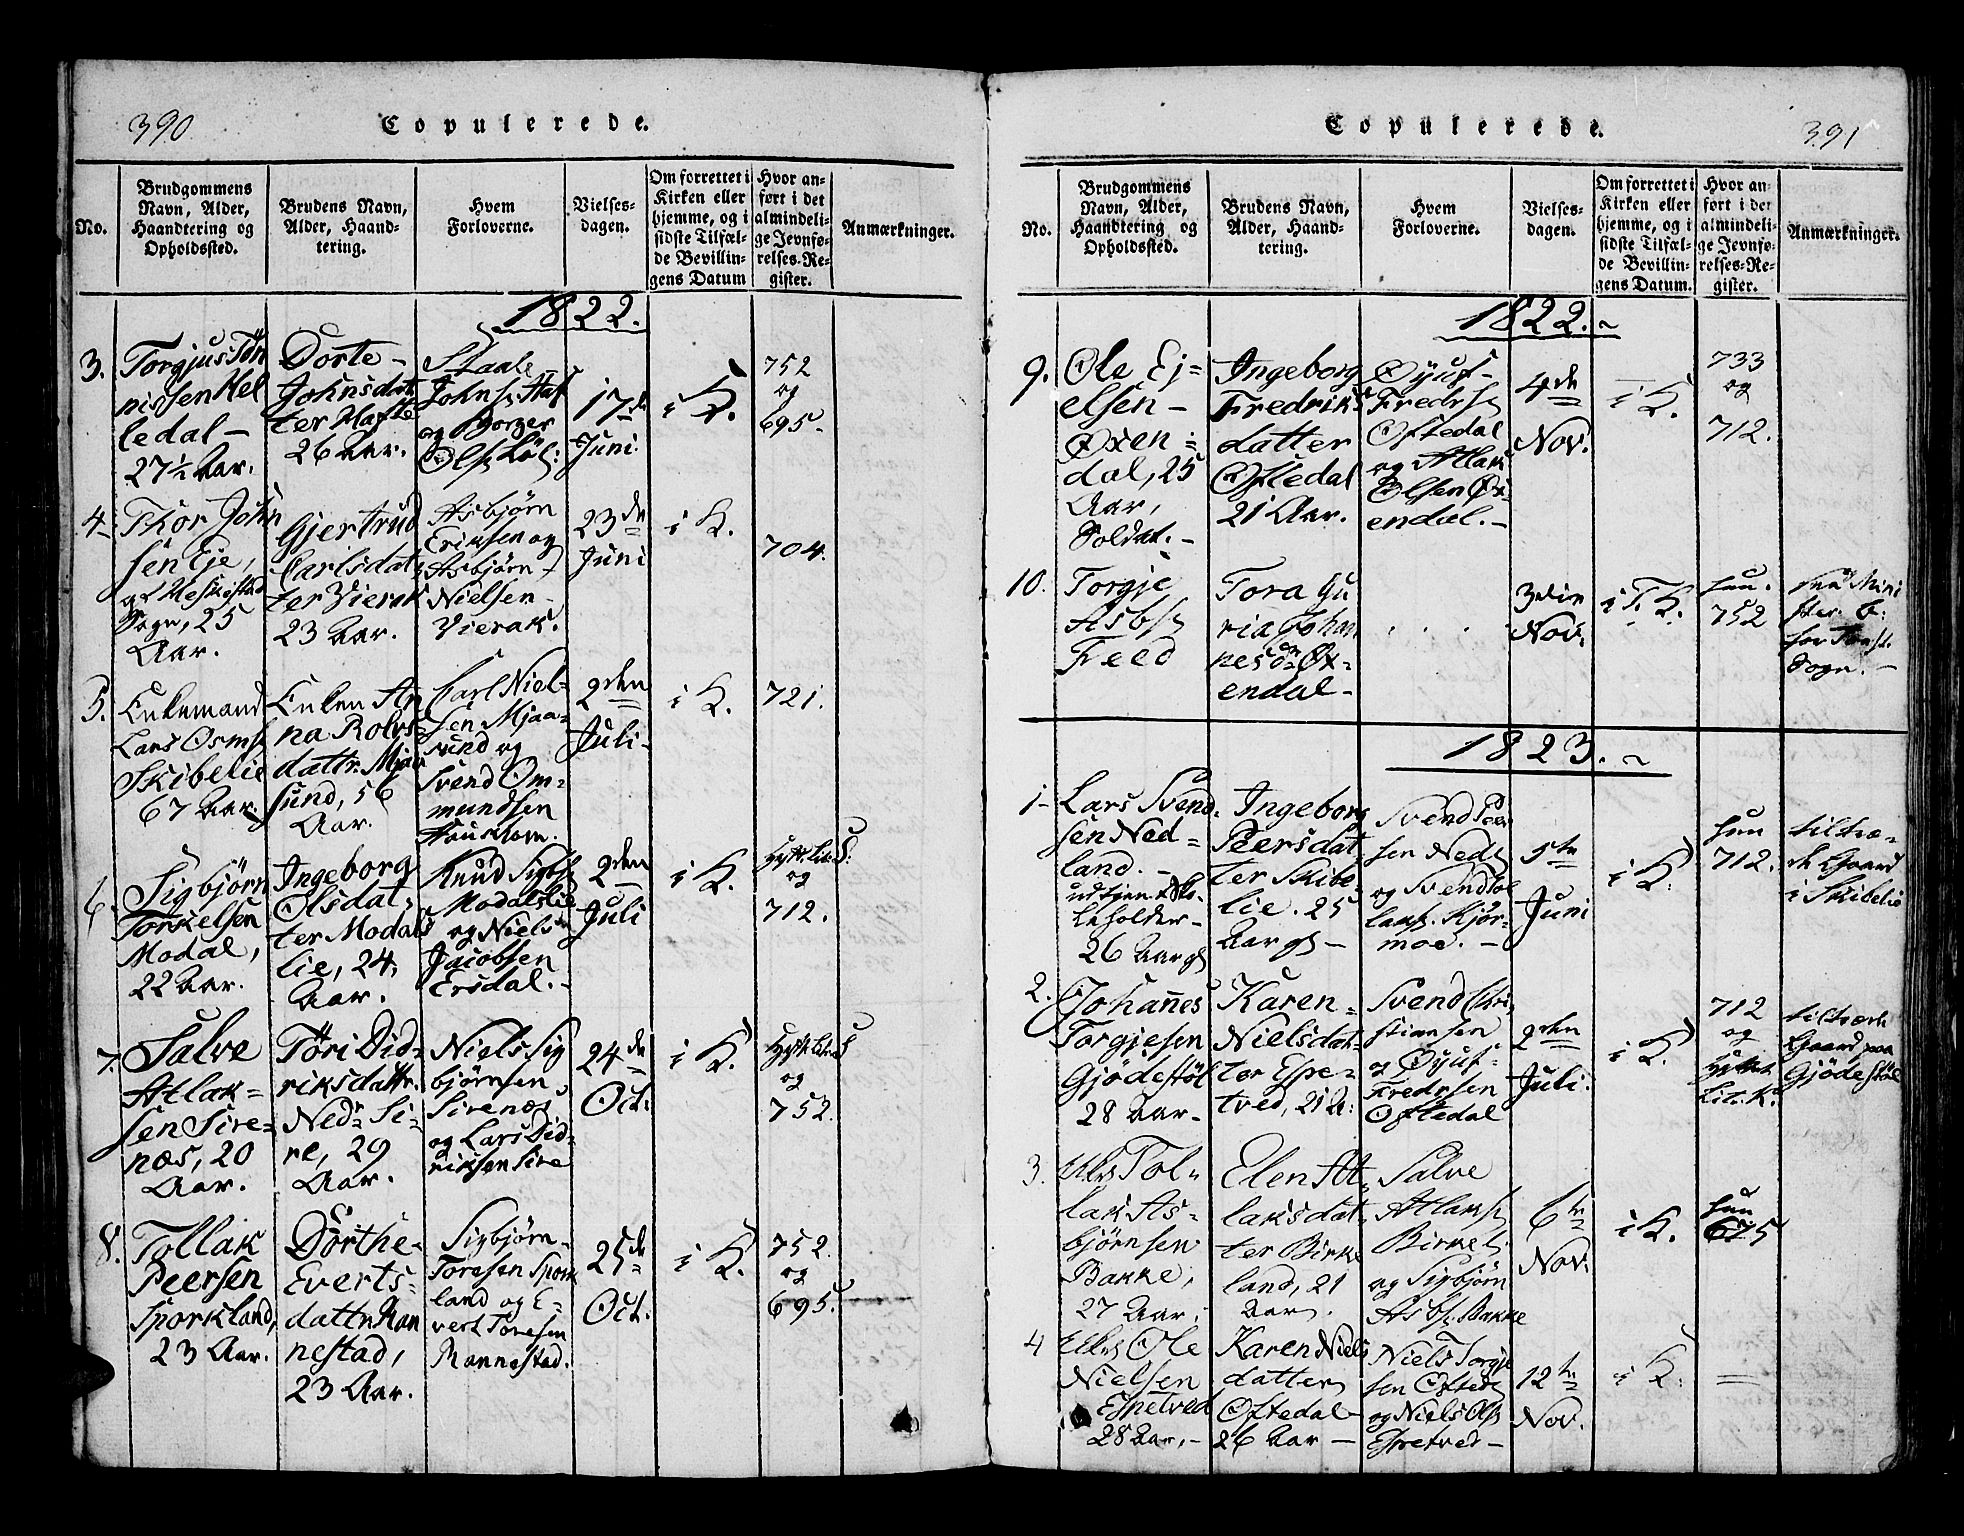 390
Copulerede.
No.
Brudgommens
Navn, Alder,
Haandtering og
Opholdssted.
Brudens Navn,
Alder, Haand-
tering.
Hvem
Forloverne.
Vielses-
dagen.
Om forrettet i
Kirken eller
hjemme, og i
sidste Tilfæl-
de Bevillin-
gens Datum
Hvor an-
ført i det
almindeli-
ge Jevnfø-
relses-Re-
gister.
Anmærkninger.
1822.
3.
Torgjus Tön
nissen Hel
ledal-
27½ Aar.
Dorte-
Johnsdat
ter Hafte
26 Aar.
Staale
Johns. Haf
og Borger
Ols. Löl:
17de
Juni.
i K.
752
og
695.
4.
Thor John
sen Eje,
af Heskestad
Sogn, 25
Aar.
Gjertrud
Carlsdat
ter Vierak
23 Aar.
Asbjörn
Eriksen og
Asbjörn
Nielsen
Vierak.
23de
Juni
i K.
704.
5.
Enkemand
Lars Osms.
Skibelie
67 Aar.
Enken An
na Rolvs
dattr. Mjaa
sund, 56
Aar.
Carl Niel-
sen Mjaa-
sund og
Svend Om-
mundsen
2den
Juli
i K.
721.
6.
Sigbjörn
Torkelsen
Modal,
22 Aar.
Ingeborg
Olsdat,
ter Modals
lie, 24
Aar.
Knud Sigbs.
Modalslie
og Niels
Jacobsen
Ersdal.
2den
Juli
i K.
og
712.
7.
Salve
Atlak-
sen Sire-
næs, 20
Aar.
Töri Did-
riksdattr.
Nedr Si-
re, 29
Aar.
Niels Sig
bjørnsen
Sirenæs
og Lars Did-
riksen Sire
24de
Oct.
i K.
og
752.
8.
Tollak
Peersen
Sporkland,
23 Aar.
Dorthe-
Everts-
dattr. Ran
nestad,
23 Aar.
Sigbjörn
Toresen Spork
land og E-
vert Toresen
Rannestad.
25de
Oct.
i K.
752.
og
695.
391
Copulerede.
No.
Brudgommens
Navn, Alder,
Haandtering og
Opholdssted.
Brudens Navn,
Alder, Haand-
tering.
Hvem
Forloverne.
Vielses-
dagen.
Om forrettet i
Kirken eller
hjemme, og i
sidste Tilfæl-
de Bevillin-
gens Datum.
Hvor an-
ført i det
almindeli-
ge Jevnfø-
relses-Re-
gister.
Anmærkninger.
1822.
9.
Ole Ej-
elsen-
Øxen-
dal, 25
Aar,
Soldat.-
Ingeborg
Fredriks
datter
Oftedal
21 Aar.
Öyuf-
Fredrs.
Oftedal
og Atlak
Olsen Öx-
endal.-
4de
Nov.
i K.
733
og
712.
10.
Torgje
Asbs.
Feed
Tora Gu
ria Johan
nesdr Öx-
endal-
3die
Nov.
i T. K.
hun.
752
Sogn.-
1823.
1-
Lars Svend-
sen Ned-
land.-
26 Aar gl
Ingeborg
Peersdat
ter Skibe-
lie. 25
Aar gl-
Svend Peer
sen Nedl
og Svend Tol
laks. Kjör-
moe.-
5te
Juni
i K.
hun
712.
tiltræ-
der Gaard
i Skibelie
2.
Johannes
Torgjesen
Gjödestöl
28 Aar-
Karen-
Nielsdat-
ter Espe-
tved, 21 A:
Svend Chri-
stiansen
og Öyuf-
Fredrsen
Oftedal
2den
Juli.
i K.
712
og
Lit. K.
tiltræder
Gaard paa
Gjödestöl
3.
Tol-
lak As-
björnsen
Bakke,
27 Aar.
Elen At
laksdat-
ter Birke
land, 21
Aar.
Salve
Atlaks.
Birkel.
og Sigbjörn
Asbs. Bakke
6te
Nov.
i K.
hun
675
4
Ole
Nielsen
Espetved
28 Aar.-
Karen Niels
datter
Oftedal
26 Aar-
Niels Torgje
sen Oftedl
og Niels Ols.
Espetved-
12te
Nov.
i K.